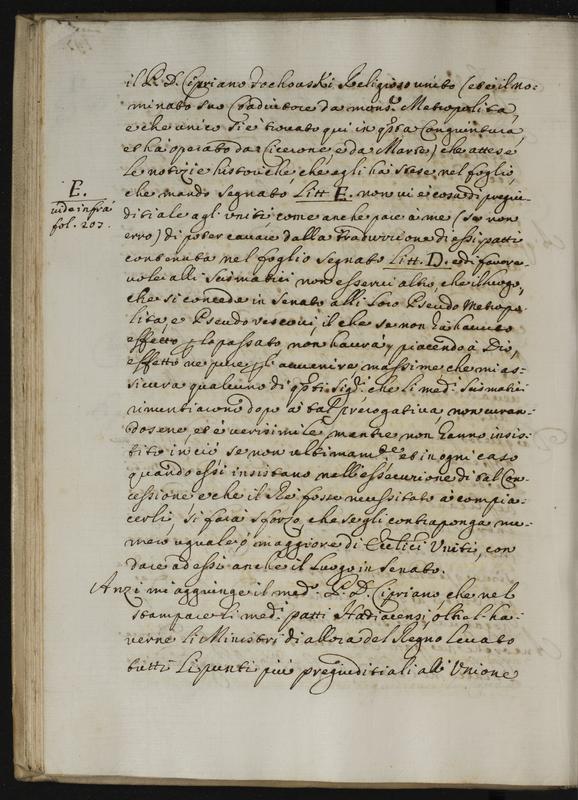 il P. D. Cipriano Jochouski Religioso unito (et è il no-
minato suo Traduttore da mons.r Metropolita,
e che unico si è trouato qui in q.sta Congiuntura,
et hà operato da Cicerone e da Marte) che attese
le notizie historiche, che egli hà stese nel foglio,
E.
uide infrà
fol. 207.
che mando segnato Litt. E. non ui è cosa di pregiu-
ditiale agl' uniti, come anche pare à me (se non
erro) di poter cauare dalla traduzzione di essi patti
contenuta nel foglio segnato Litt. D. e di fauore-
uole alli Scismatici non esserui altro, che il luogo,
che si concede in Senato alli loro Pseudo Metropo-
lita, e Pseudo Vescoui, il che se non hà hauuto
effetto p lo passato non haurà, piacendo à Dio,
effetto ne pure p l' auuenire, massime che mi as-
sicura qualcuno di q.sti Sig.ri che li med.i Scismatici
rinuntiarono dopo à tal prerogatiua non curan-
dosene, et è uerisimile mentre non hanno insis-
tito in ciò se non ultimam.te et in ogni caso
quando essi insistano nell' essecuzione di tal Con-
cessione e che il Rè fosse necessitato à compia-
cerli, si farà sforzo, che se gli contraponga nu-
mero uguale, ò maggiore di Uniti, con
dare ad essi anche il luogo in Senato.
Anzi mi aggiunge il med.o P. D. Cipriano, che nel
stampare li med.i patti Hadiacensi, oltre l' ha-
uerne li Ministri di allora del Regno leuato
tutti li punti più pregiuditiali all' Unione